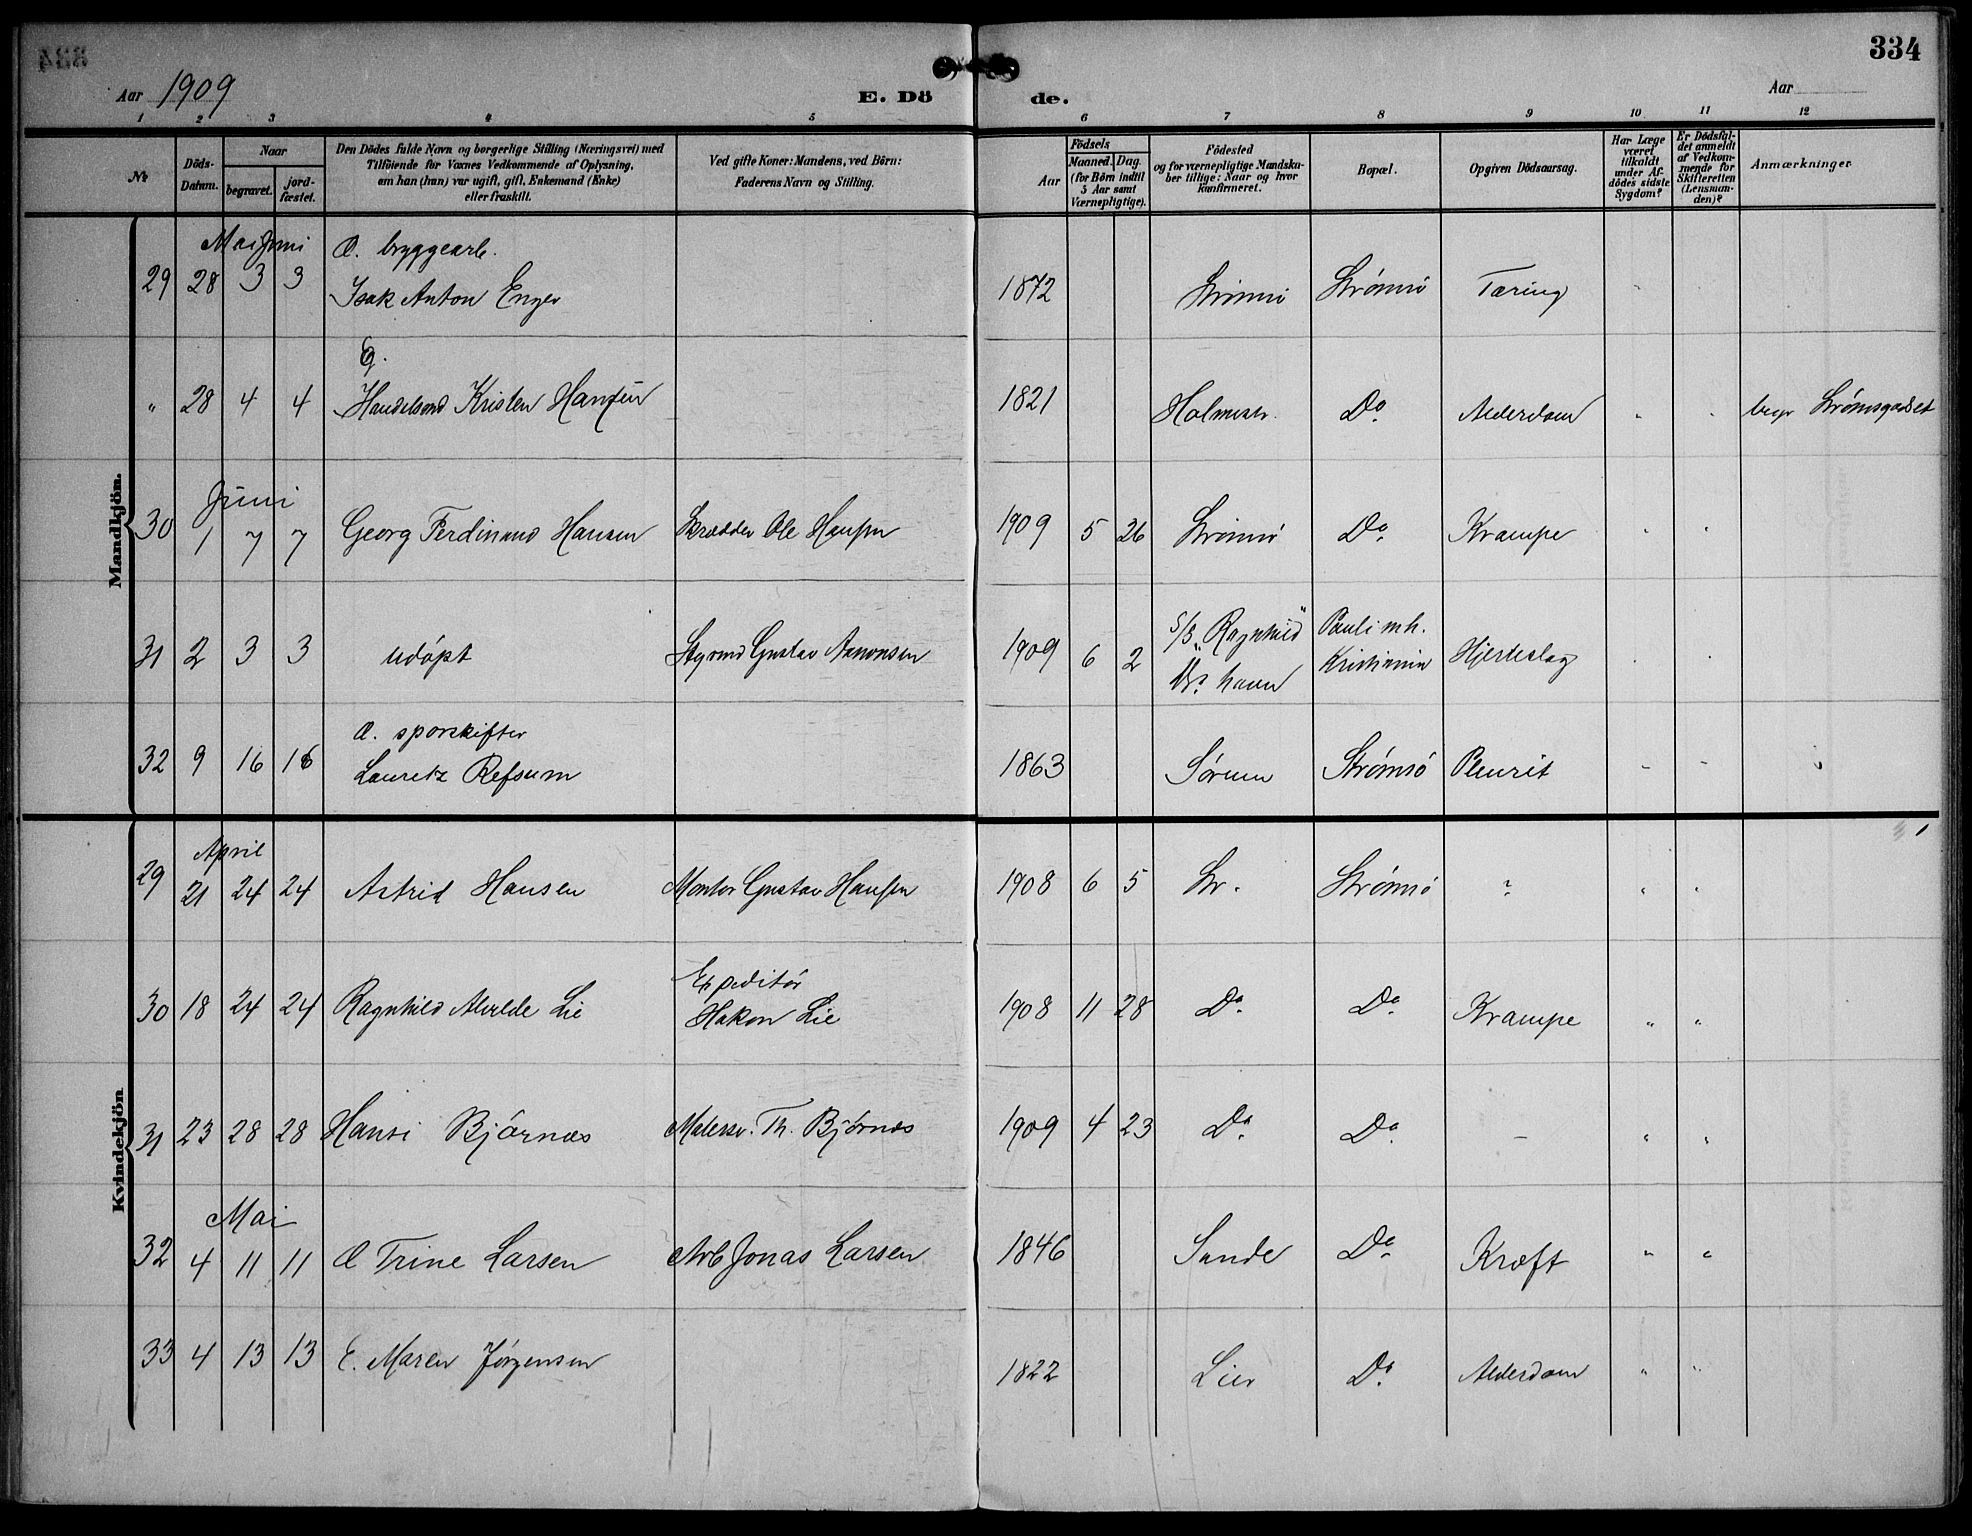 334
Aar 1909
E. Dö de.
Aar
1 2 3 4 5 6 7 8 9 10 11 12
№
Döds-Datum.
Naar
begravet.
jord-fæstet.
Den Dödes fulde Navn og borgerlige Stilling (Næringsvei) med
Tilföiende for Voxnes Vedkommende af Oplysning,
om han (hun) var ugift, gift, Enkemand (Enke)
eller fraskilt.
Ved gifte Koner: Mandens, ved Börn:
Faderens Navn og Stilling.
Födsels
Aar
Maaned. Dag.
(for Börn indtil
5 Aar samt
Værnepligtige).
Födested
og for værnepligtige Mandsku-
ber tillige: Naar og hvor
konfirmeret.
Bopæl.
Opgiven Dödsaarsag.
Har Læge
været
tilkaldt
under Af-
dödes sidste
Sygdom?
Er Dödsfal-
det anmeldt
af Vedkom-
mende for
Skifteretten
(Lensman-
den)?
Anmærkninger.
Mandkjön.
Mai Juni
29 28 3 3 bryggearb. Isak Anton Enger 1872 Strømsö Strømsö Tæring
" 28 4 4 g. Handelsmd Kristen Hansen 1821 Holmestr. Do Alderdom " " begr Strømsgodset
Juni
30 1 7 7 Georg Ferdinand Hansen Skrædder Ole Hansen 1909 5 26 Strømsö Do Krampe " "
31 2 3 3 udöpt Styrmd Gustav Aamonsen 1909 6 2 S/S "Ragnhild" havn Pauli mh. Kristiania Hjerteslag
32 9 16 16 sporskifter Lauretz Refsum 1863 Sørum Strømsö Pleurit
Kvindekjön
April
29 21 24 24 Astrid Hansen Montør Gustav Hansen 1908 6 5 Str. Strømsö ? " "
30 18 24 24 Ragnhild Alvilde Lie Expeditör Hakon Lie 1908 11 28 Do Do Krampe " "
31 23 28 28 Hansi Bjørnæs Malersv. Th. Bjørnæs 1909 4 23 Do Do – " "
Mai
32 4 11 11 Trine Larsen Arb Jonas Larsen 1846 Sande Do Kræft " "
33 4 13 13 E. Maren Jörgensen 1822 Lier Do Alderdom " "